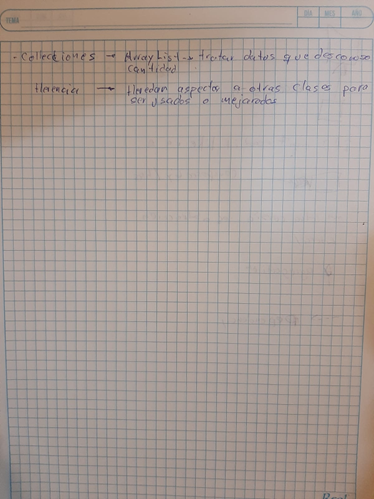 TEMA DIA MES AÑO
- Collecciones → ArrayList → tratar datos que desconozco
cantidad
Herencia → Heredan aspectos a otras clases para
ser usados o mejorados